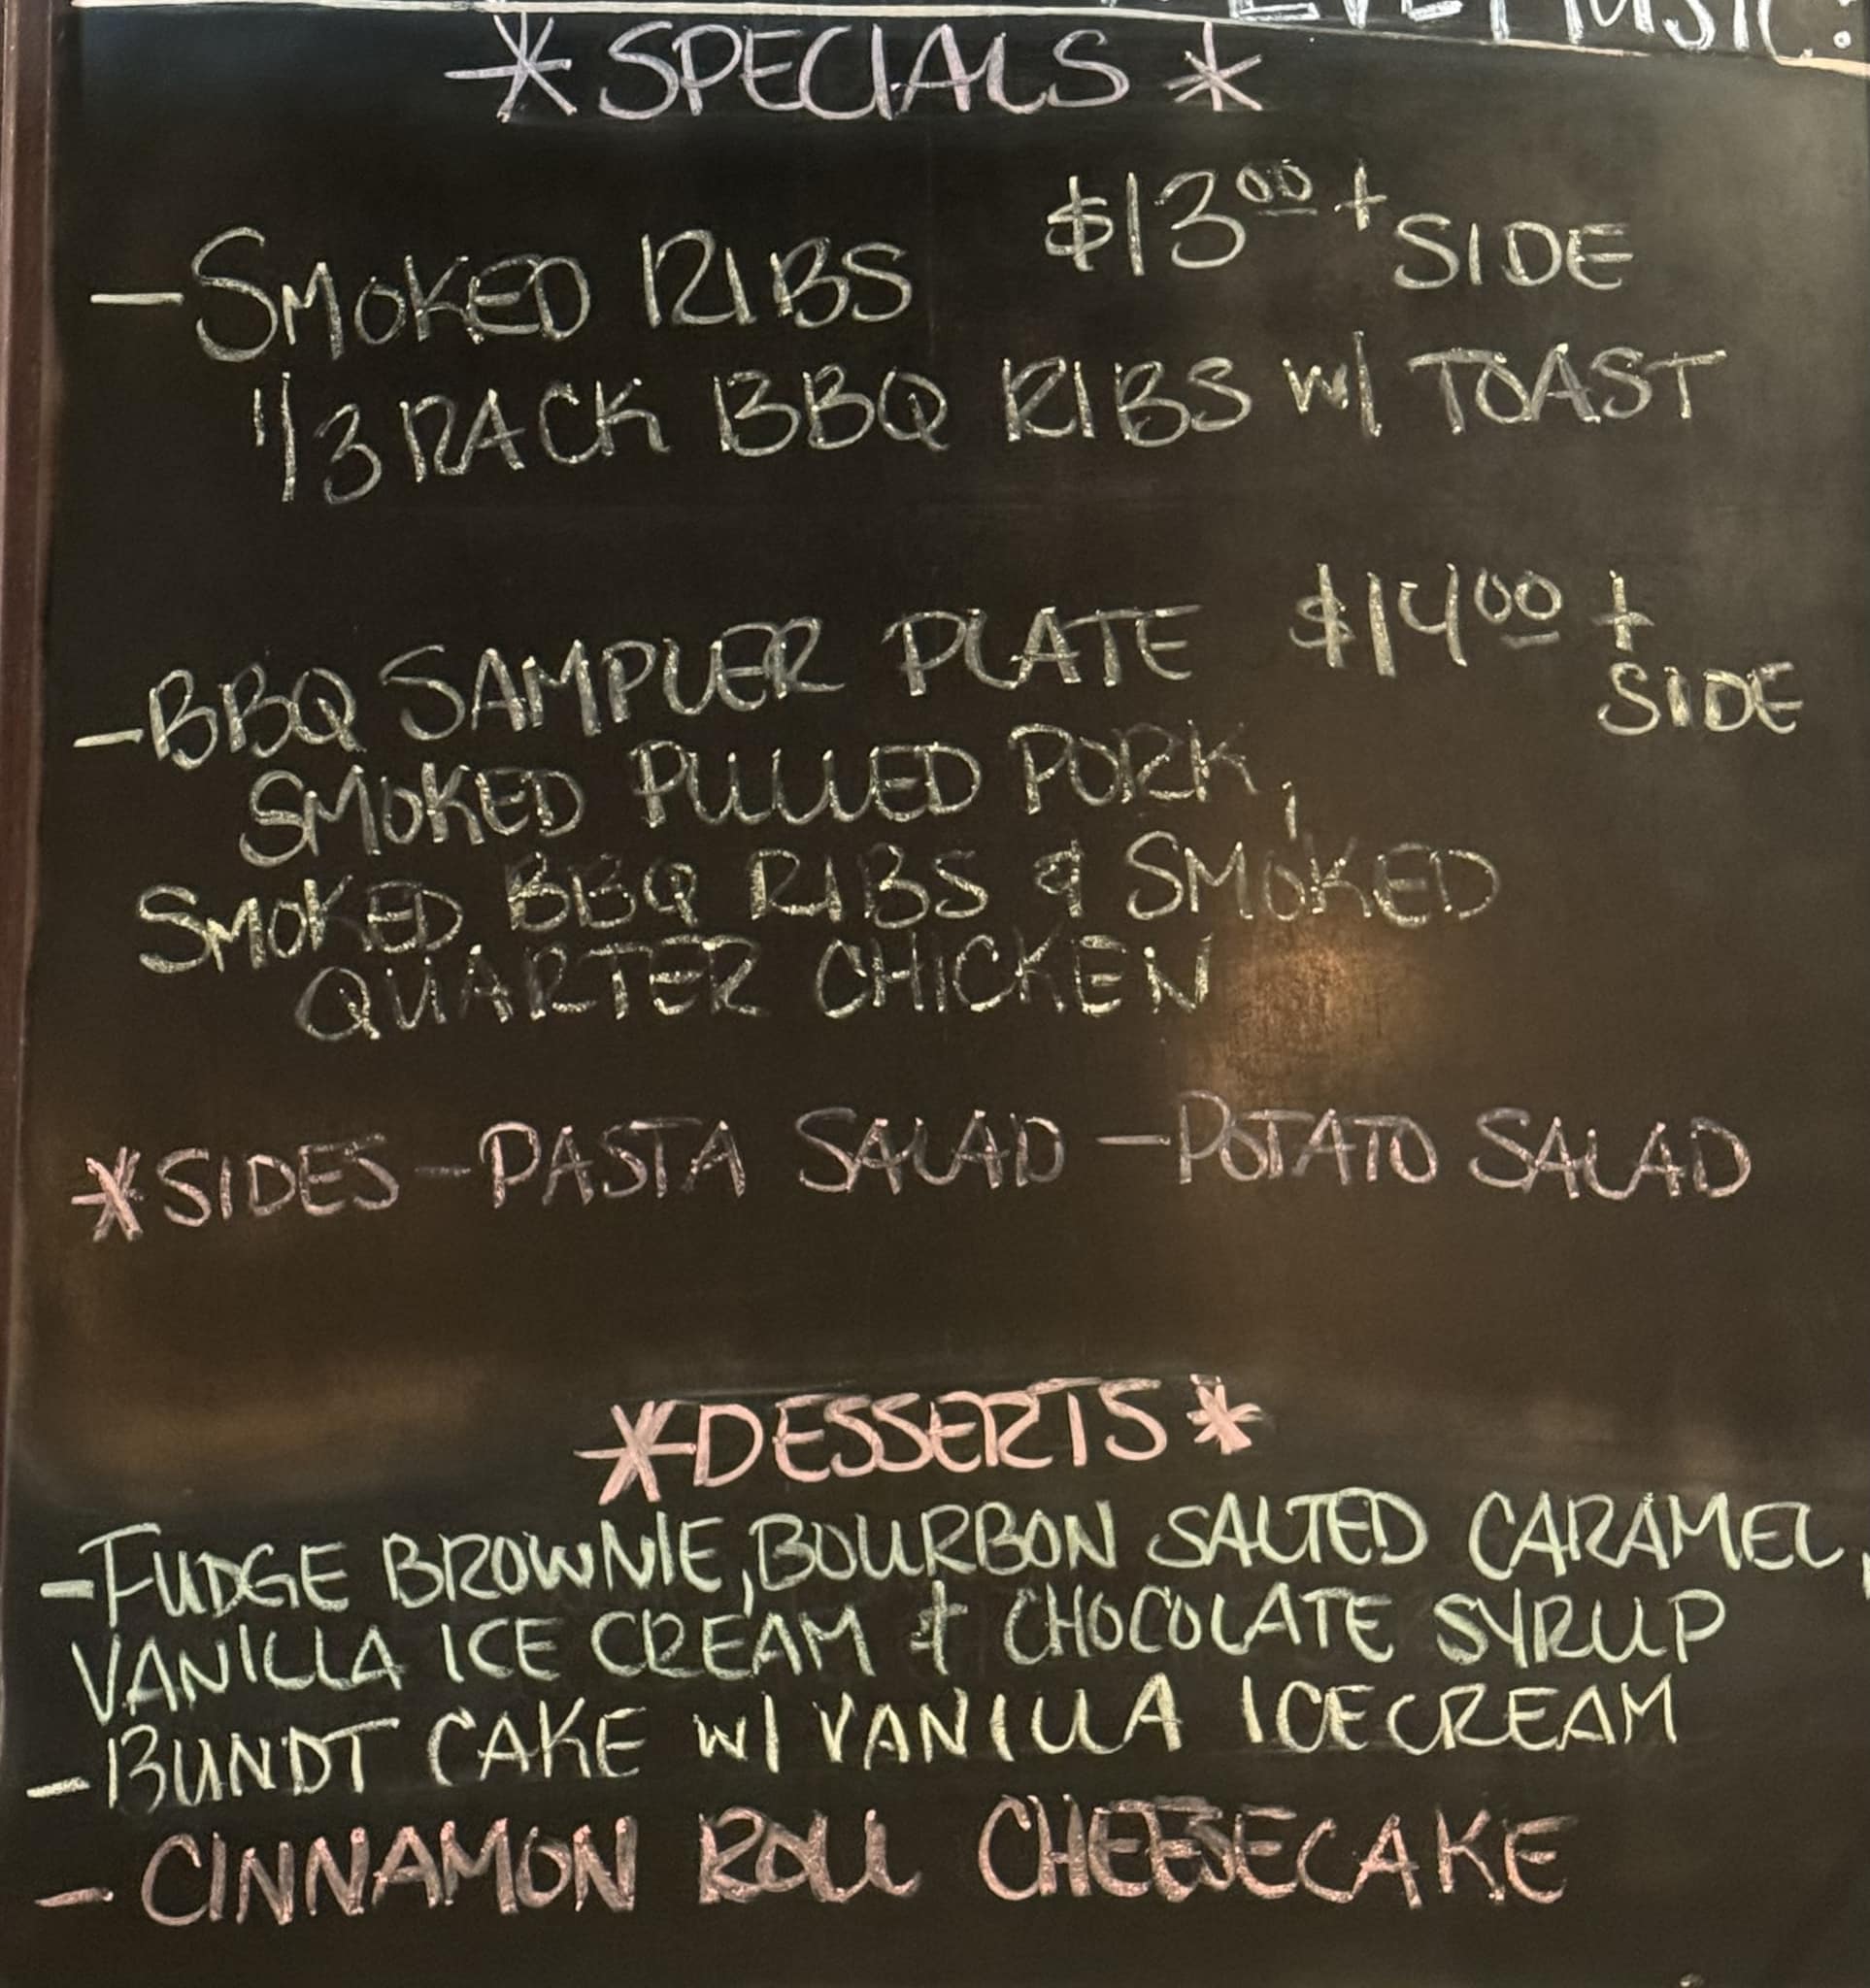 LIVE MUSIC:
*SPECIALS*
-SMOKED RIBS $13.00 + SIDE
1/3 RACK BBQ RIBS w/ TOAST
-BBQ SAMPLER PLATE $14.00 +
SIDE
SMOKED PULLED PORK,
SMOKED BBQ RIBS & SMOKED
QUARTER CHICKEN
*SIDES-PASTA SALAD-POTATO SALAD
*DESSERTS*
-FUDGE BROWNIE, BOURBON SALTED CARAMEL,
VANILLA ICE CREAM & CHOCOLATE SYRUP
-BUNDT CAKE w/ VANILLA ICE CREAM
-CINNAMON ROLL CHEESECAKE